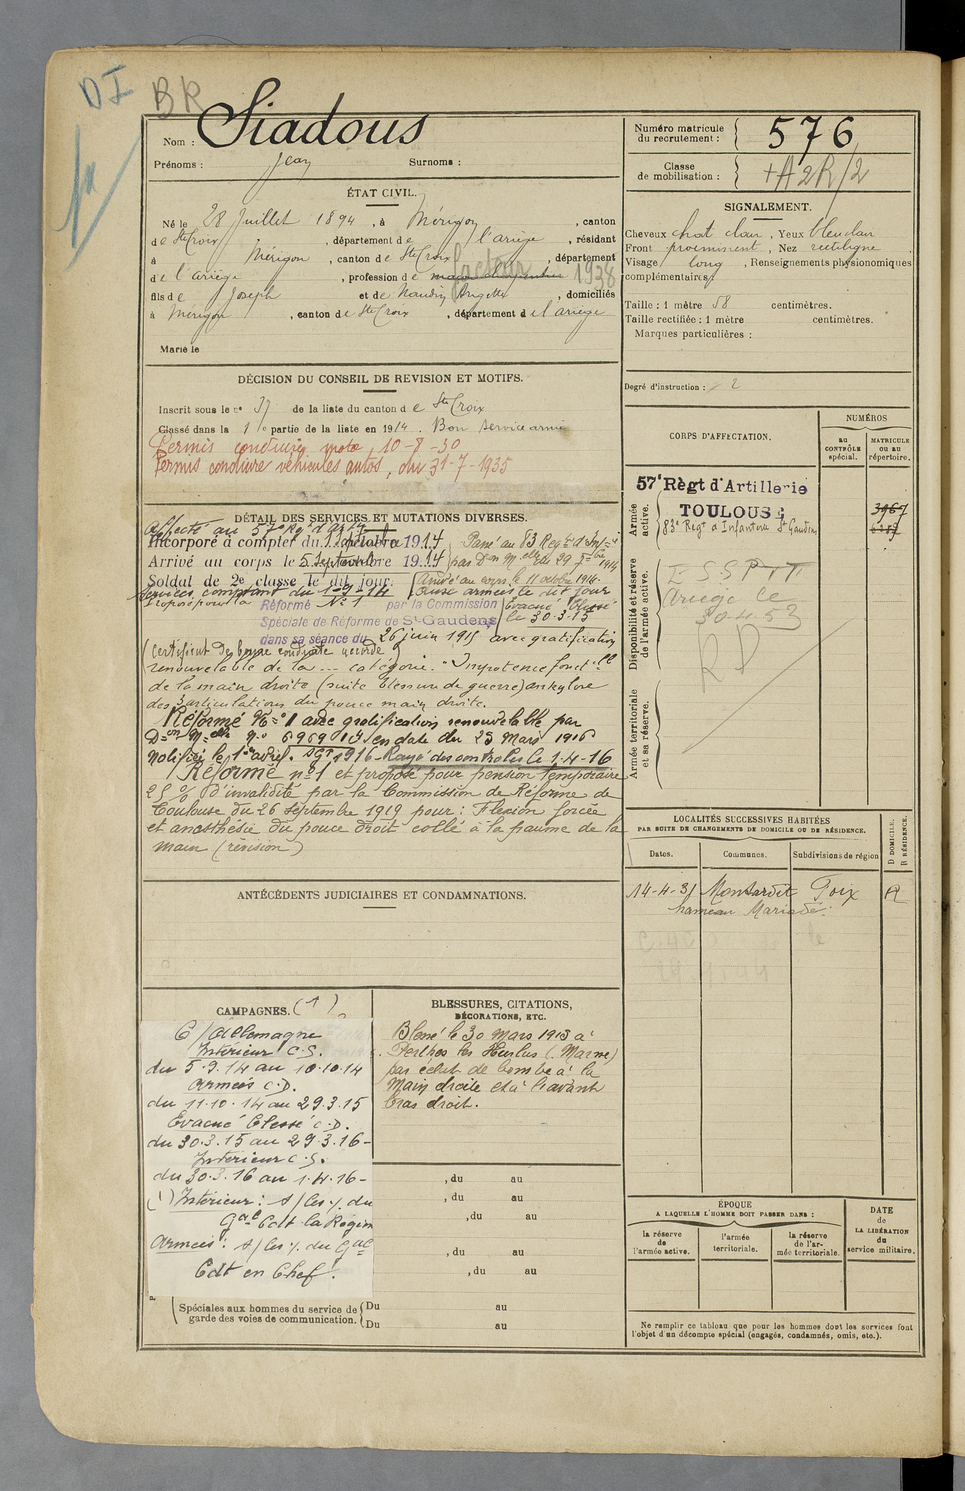 DI BR
Nom : Siadous
Prénoms : Jean Surnoms :
Numéro matricule du recrutement : 576
Classe de mobilisation :
ÉTAT CIVIL.
Né le 28 Juillet 1894, à Mérigon, canton
de Ste Croix, département de l'ariège, résidant
à Mérigon, canton de Ste Croix, département
de l'ariège, profession de facteur 1938
fils de Joseph et de Naudin Angette, domiciliés
à Mérigon, canton de Ste Croix, département de l'ariège
Marié le
SIGNALEMENT.
Cheveux chat clair, Yeux bleu clair
Front proéminent, Nez rectiligne
Visage long, Renseignements physionomiques
complémentaires
Taille : 1 mètre 58 centimètres.
Taille rectifiée : 1 mètre centimètres.
Marques particulières :
Degré d'instruction : 2
DÉCISION DU CONSEIL DE REVISION ET MOTIFS.
Inscrit sous le n° 37 de la liste du canton de Ste Croix
Classé dans la 1e partie de la liste en 1914. Bon service armé
Permis conduire moto, 10-8-30
Permis conduire véhicules autos, du 31-7-1935
DÉTAIL DES SERVICES ET MUTATIONS DIVERSES.
Affecté au 57e Régt d'Artie
Incorporé à compter du 1914
Arrivé au corps le 5 Septembre 1914
Soldat de 2e classe le dit jour.
Services comptant du 1-9-14
Passé au 83 Régt d'Infie
par Don Melle du 29 7bre 1914
Arrivé au corps le 11 octobre 1914.
aux armées le dit jour
Evacué blessé
le 30-3-15
Proposé pour la Réformé No 1 par la Commission
Spéciale de Réforme de St-Gaudens
dans sa séance du 26 juin 1915 avec gratification
(Certificat de bonne conduite accordé)
renouvelable de la --- catégorie. "Impotence fonct.lle
de la main droite (suite blessure de guerre) ankylose
des articulations du pouce main droite.
Réformé No 1 avec gratification renouvelable par
Don Melle No 6969 en date du 25 Mars 1916
Notifiée le 1er avril 1916 - Rayé des controles le 1-4-16
Réformé no 1 et proposé pour pension temporaire
25 % d'invalidité par la Commission de Réforme de
Toulouse du 26 septembre 1919 pour : Flexion forcée
et anesthésie du pouce droit collé à la paume de la
main (révision)
CORPS D'AFFECTATION.
NUMÉROS
AU CONTRÔLE spécial.
MATRICULE OU AU répertoire.
Armée active.
57e Régt d'Artillerie
TOULOUSE
83e Régt d'Infanterie St Gaudens
3467
Disponibilité et réserve de l'armée active.
Ariège le
30-4-53
RD
Armée territoriale et sa réserve.
LOCALITÉS SUCCESSIVES HABITÉES
PAR SUITE DE CHANGEMENTS DE DOMICILE OU DE RÉSIDENCE.
Dates. Communes. Subdivisions de région D DOMICILE. R RÉSIDENCE.
14-4-31 Montardit Foix R
hameau
ANTÉCÉDENTS JUDICIAIRES ET CONDAMNATIONS.
CAMPAGNES. (1)
C/ Allemagne
Intérieur C.S.
du 5.9.14 au 10.10.14
Armées C.D.
du 11.10.14 au 29.3.15
Evacué blessé C.D.
du 30.3.15 au 29.3.16 -
Intérieur C.S.
du 30.3.16 au 1.4.16 -
(1) Intérieur : s/ les o/. du
Gal Cdt la Région
Armées : s/ les o/. du Gal
Cdt en Chef.
BLESSURES, CITATIONS,
DÉCORATIONS, ETC.
Blessé le 30 Mars 1915 à
Perthes les Hurlus (Marne)
par éclat de bombe à la
Main droite et à l'avant
bras droit.
, du au
, du au
, du au
, du au
, du au
Spéciales aux hommes du service de garde des voies de communication.
Du au
Du au
ÉPOQUE
A LAQUELLE L'HOMME DOIT PASSER DANS :
la réserve de l'armée active.
l'armée territoriale.
la réserve de l'armée territoriale.
DATE de LA LIBÉRATION du service militaire.
Ne remplir ce tableau que pour les hommes dont les services font
l'objet d'un décompte spécial (engagés, condamnés, omis, etc.).